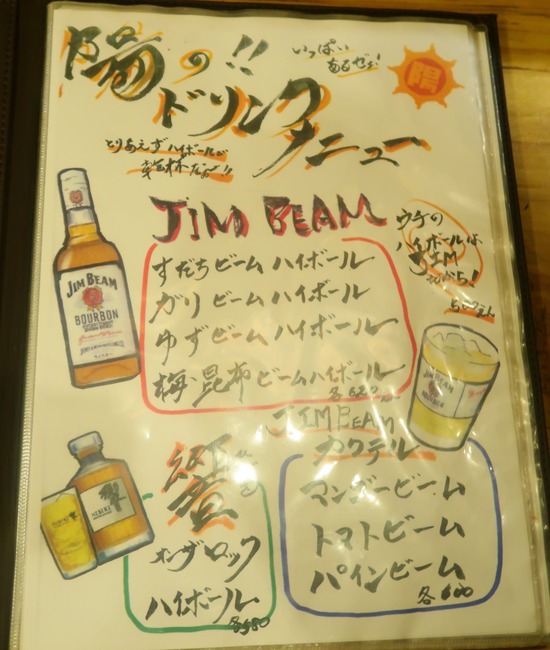 陽の!!
いっぱい
あるぜぇ!
陽
ドリンク
メニュー
とりあえずハイボールが
JIM BEAM
ウチの
ハイボールは
JIM
すだちビーム ハイボール
ガリ ビーム ハイボール
ゆずビーム ハイボール
梅・昆布ビームハイボール
JIM BEAM
BOURBON
JIM BEAM
JIM BEAM
カクテル
マンゴービーム
トマトビーム
パインビーム
各600
響
オンザロック
ハイボール
各580